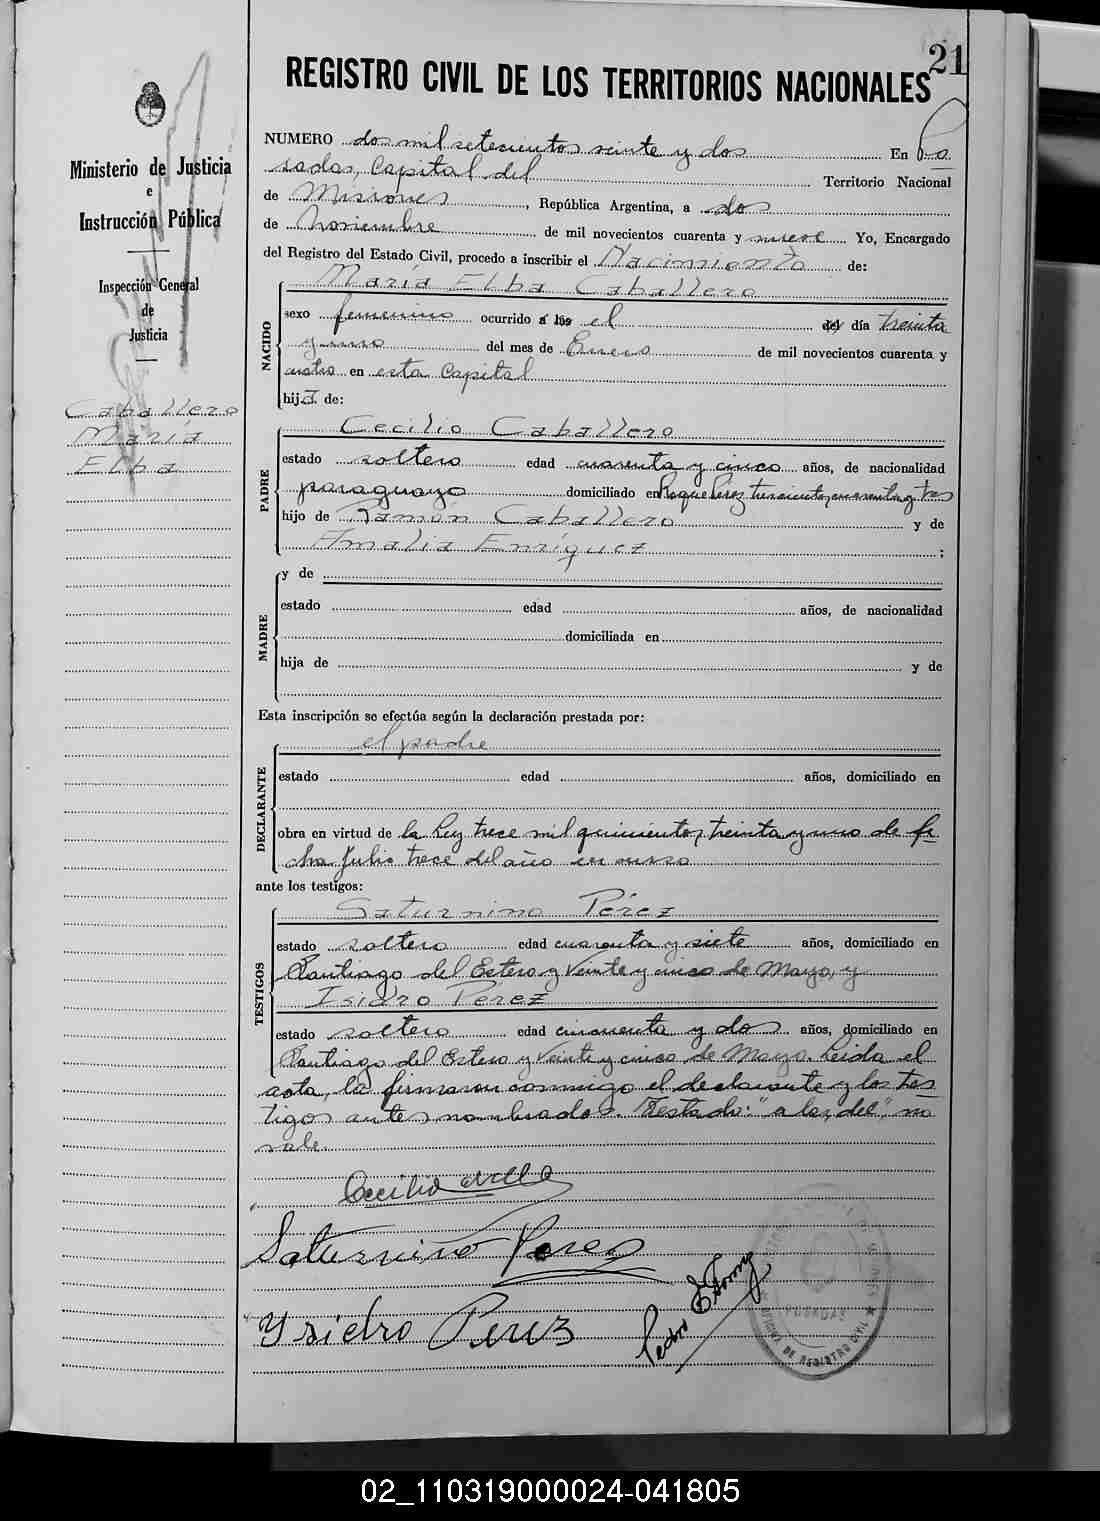 21
REGISTRO CIVIL DE LOS TERRITORIOS NACIONALES
Ministerio de Justicia
e
Instrucción Pública
Inspección General
de
Justicia
Caballero
María
Elba
NUMERO dos mil setecientos veinte y dos En Po
sadas, Capital del Territorio Nacional
de Misiones, República Argentina, a dos
de Noviembre de mil novecientos cuarenta y nueve Yo, Encargado
del Registro del Estado Civil, procedo a inscribir el Nacimiento de:
María Elba Caballero
NACIDO
sexo femenino ocurrido a las el del día treinta
y uno del mes de Enero de mil novecientos cuarenta y
cuatro en esta Capital
hija de:
PADRE
Cecilio Caballero
estado soltero edad cuarenta y cinco años, de nacionalidad
paraguayo domiciliado en Roque Pérez trescientos cuarenta y tres
hijo de Ramón Caballero y de
Amalia Enríquez ;
MADRE
y de
estado edad años, de nacionalidad
domiciliada en
hija de y de
Esta inscripción se efectúa según la declaración prestada por:
DECLARANTE
el padre
estado edad años, domiciliado en
obra en virtud de la Ley trece mil quinientos treinta y uno de fe
cha Julio trece del año en curso
ante los testigos:
TESTIGOS
Saturnino Pérez
estado soltero edad cuarenta y siete años, domiciliado en
Santiago del Estero y Veinte y cinco de Mayo, y
Isidro Pérez
estado soltero edad cincuenta y dos años, domiciliado en
Santiago del Estero y Veinte y cinco de Mayo. Leida el
acta, la firmaron conmigo el declarante y los tes
tigos antes nombrados. Testado: "a las, del", no
vale.
Cecilio
Saturnino Perez
Ysidro Perez
Pedro E.
POSADAS
OFICINA DE REGISTRO CIVIL
02_110319000024-041805